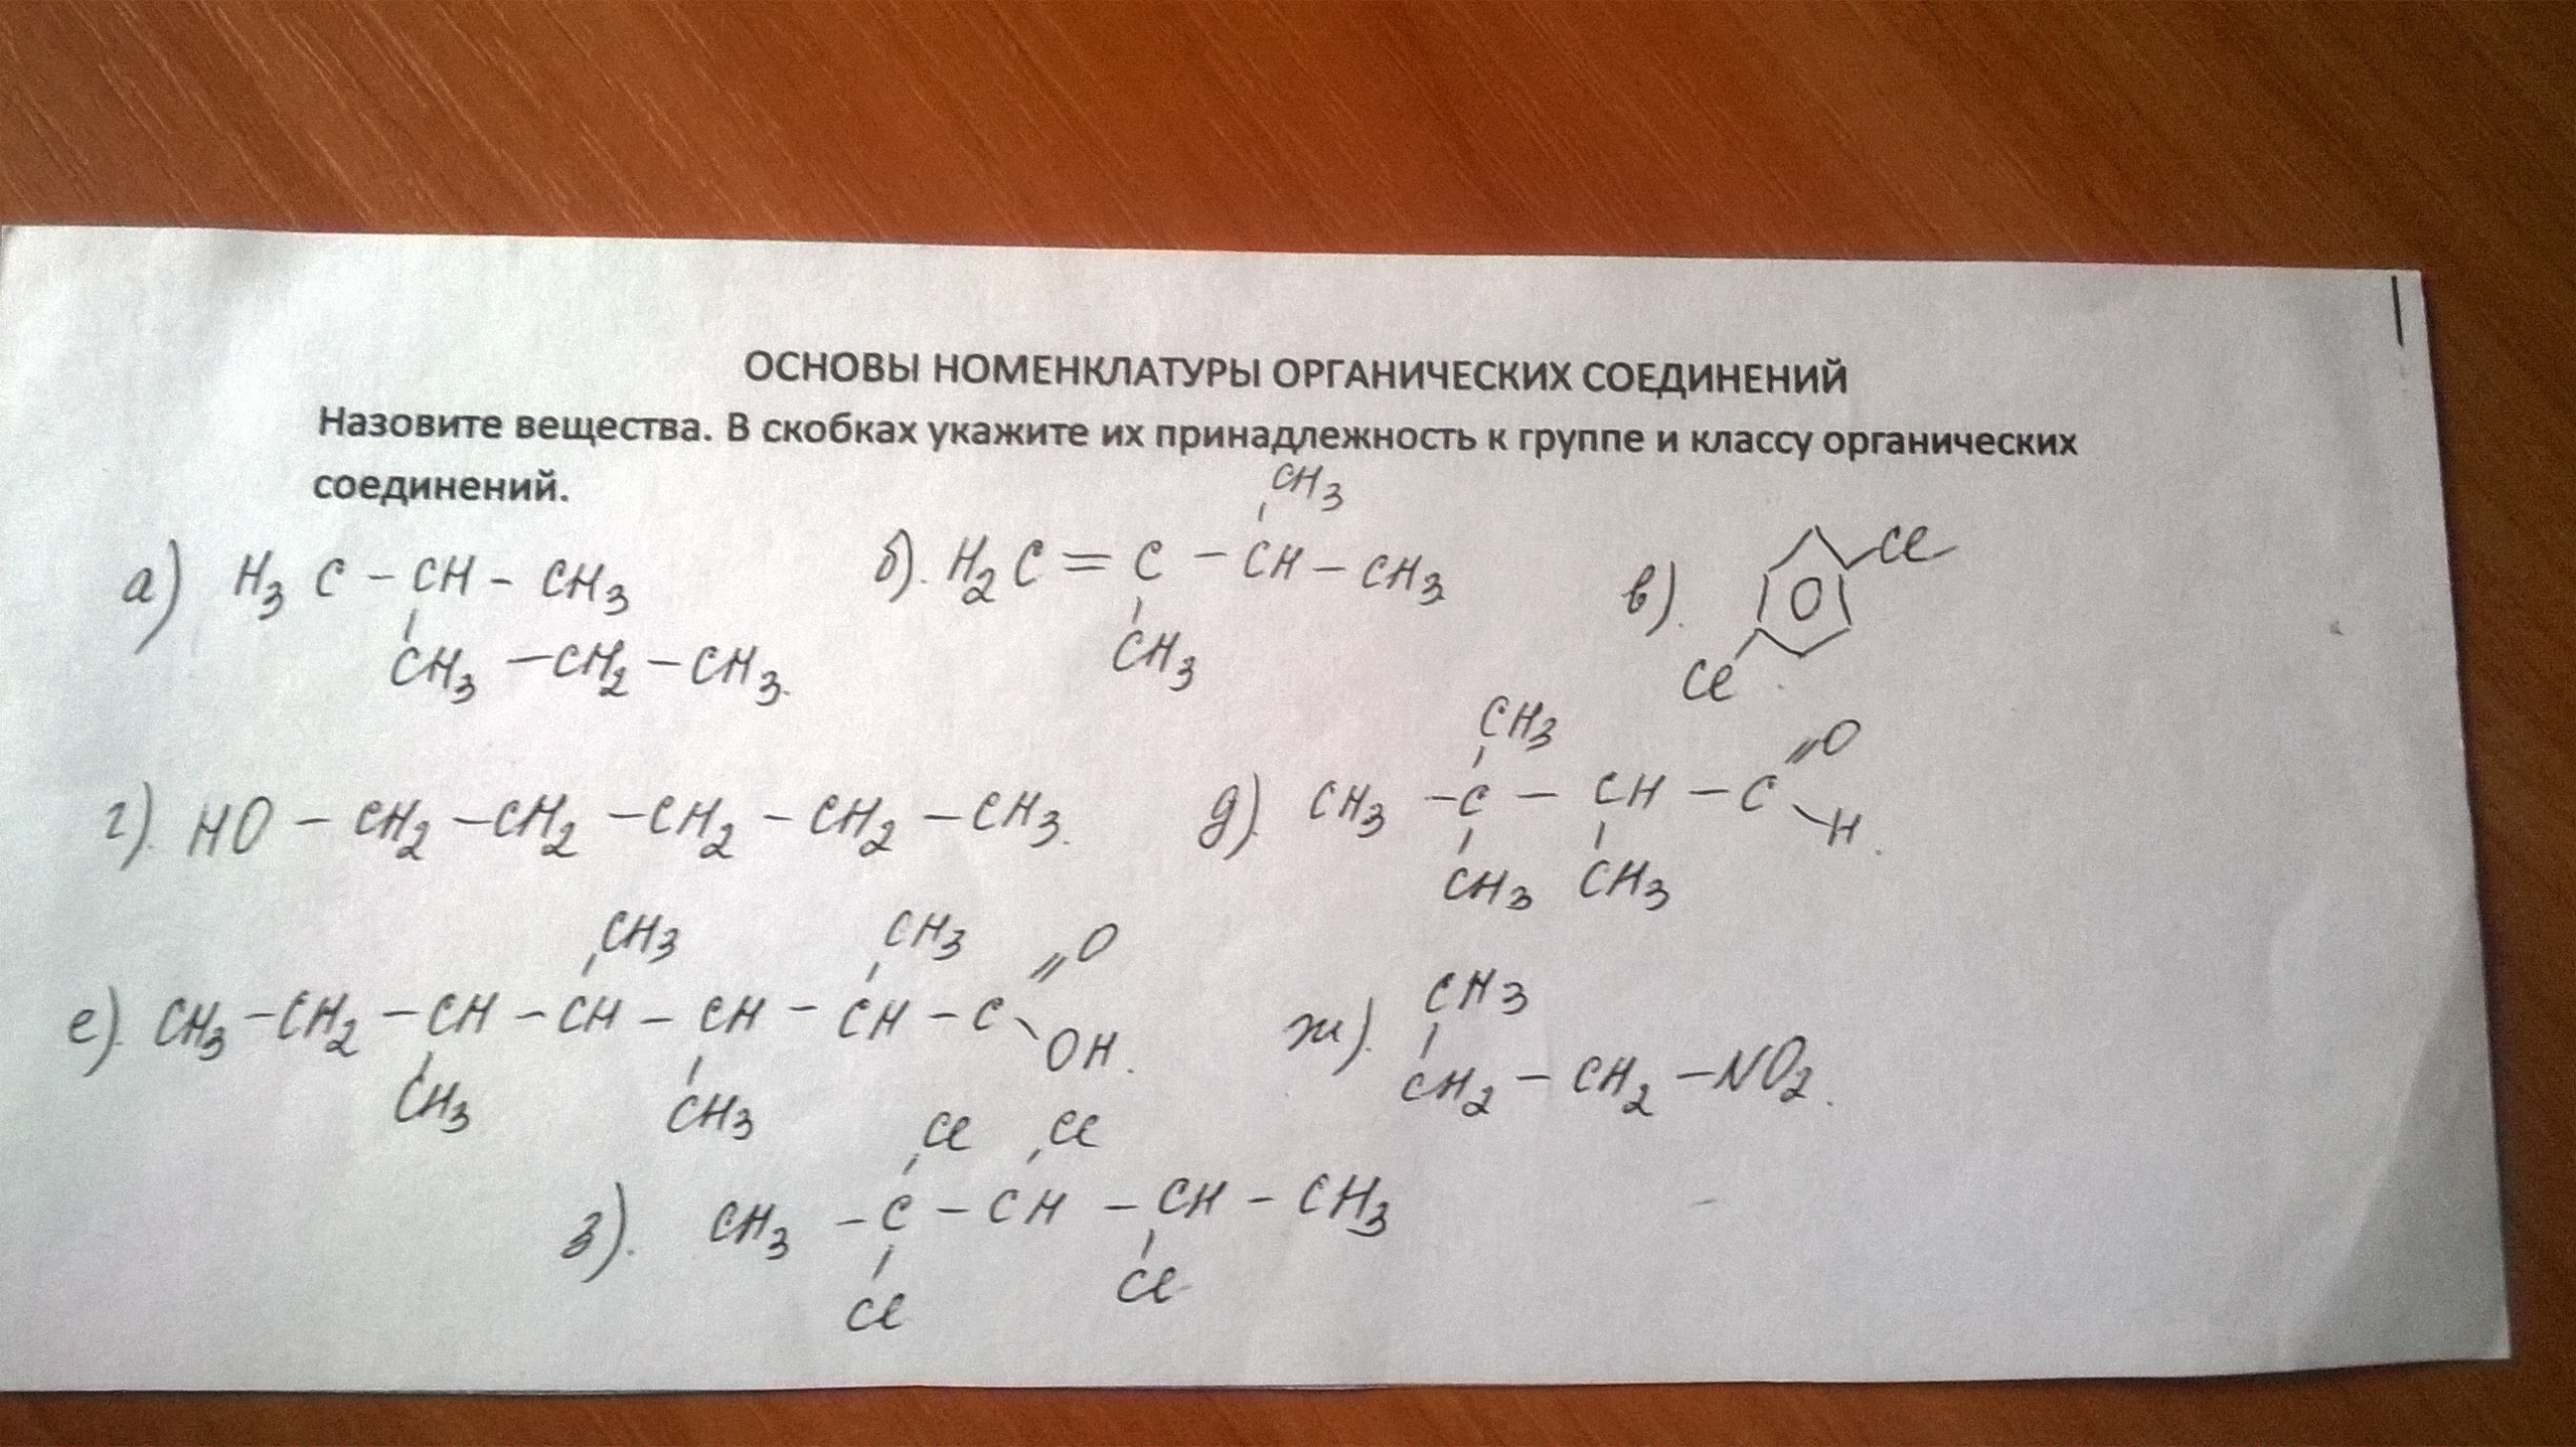 ОСНОВЫ НОМЕНКЛАТУРЫ ОРГАНИЧЕСКИХ СОЕДИНЕНИЙ
Назовите вещества. В скобках укажите их принадлежность к группе и классу органических
соединений.
CH3
а) H3C - CH - CH3 б). H2C = C - CH - CH3 в). Cl
CH3 - CH2 - CH3. CH3 Cl
CH3
г). HO - CH2 - CH2 - CH2 - CH2 - CH3. д). CH3 - C - CH - C =O
- H.
CH3 CH3
CH3 CH3
е). CH3 - CH2 - CH - CH - CH - CH - C =O
OH.
CH3 CH3
ж). CH3
CH2 - CH2 - NO2.
Cl Cl
з). CH3 - C - CH - CH - CH3
Cl Cl